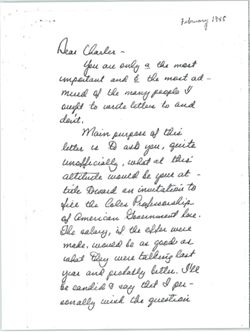 February 1955
Dear Charles -
You are only & the most
important and & the most ad-
mired of the many people I
ought to write letters to and
don't.
Main purpose of this
letter is to ask you, quite
unofficially, what at this
altitude would be your at-
titude toward an invitation to
fill the Coles Professorship
of American Government here.
The salary, if the offer were
made, would be as good as
what they were talking last
year and probably better. I'll
be candid & say that I per-
sonally wish the question